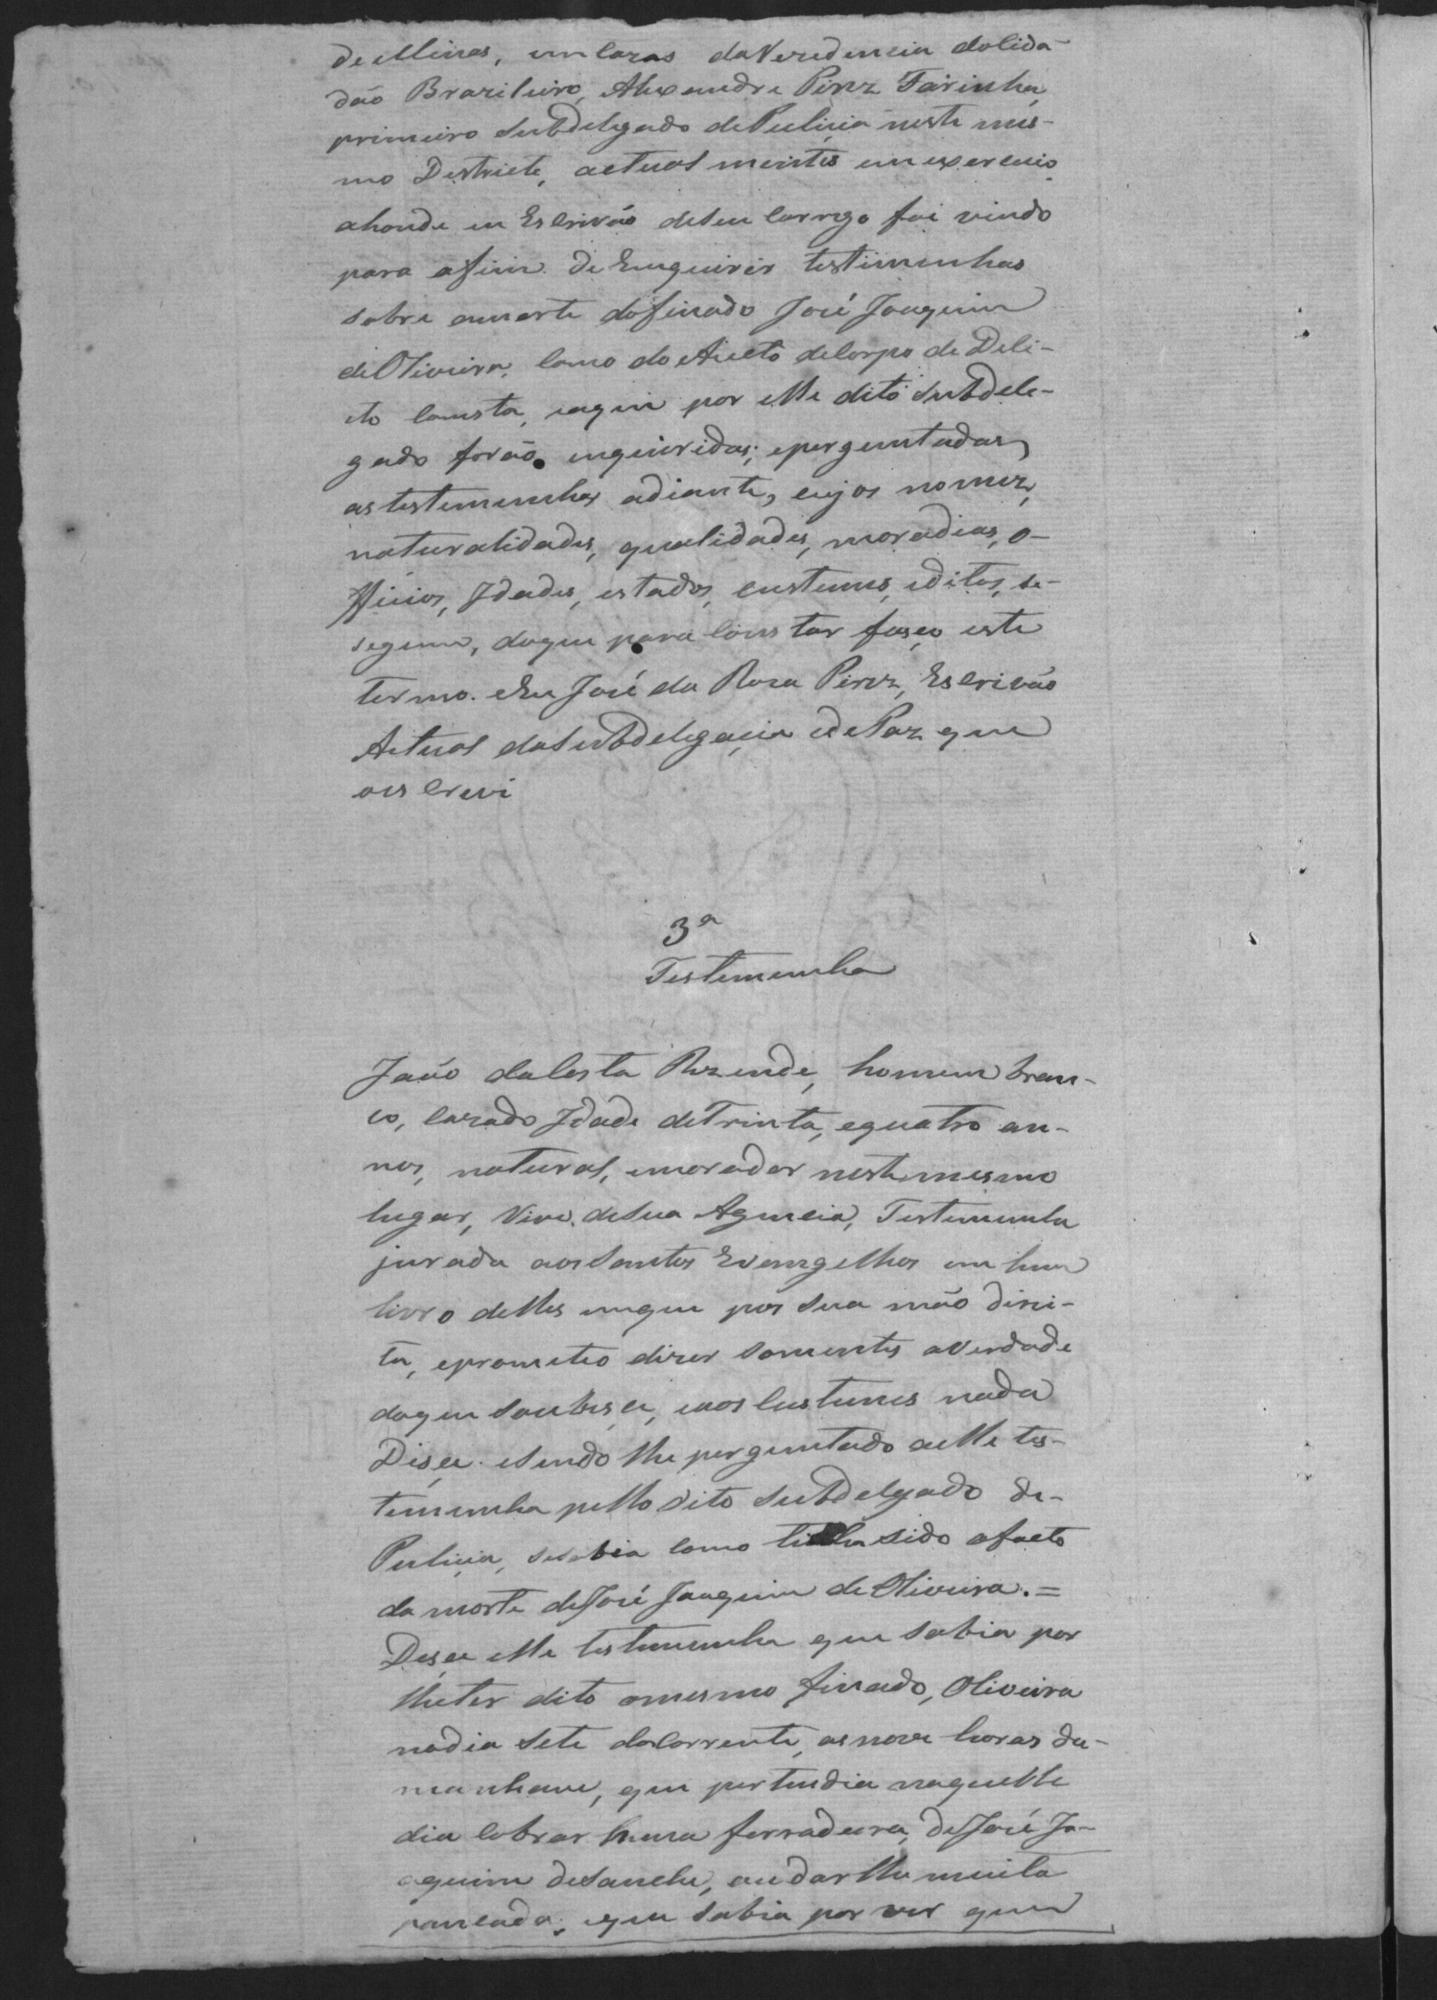 de Minas, em cazas da Rezidencia do Cida-
dão Brazileiro, Alexandre Pirez Farinha,
primeiro Subdelgado de Pulicia neste mes-
mo Destricto, actual mentes em exercicio
ahonde eu Escrivão de seu Carrego foi vindo
para afim de Emquirir testimunhas
sobre amorte dofinado José Joaquim
de Oliveira, Como do Aucto deCorpo de Deli-
cto Consta, eaqui por elle dito Subdele-
gado forão emquiridas, eperguntadas
as testemunhas adiante, cujos nomez,
naturalidades, qualidades, moradias, o-
fficios, Idades, estados, custumes, editos, se-
seguem, doque para Constar fasço este
termo. Eu José da Roza Pirez, Escrivão
Actual daSubdelegacia ede Paz que
oescrevi
3ª
Testemunha
João daCosta Rezende, homem bran-
co, Cazado Idade deTrinta, equatro an-
nos, natural, emorador nestemesmo
lugar, Vive desua Agencia, Testemunha
jurada aosSantos Evangelhos em hum
livro delles emque pos sua mão direi-
ta, eprometeo dizer somentes averdade
doque soubesse, eaos Custumes nada
Disçe. esendo lhe perguntado aelle tes-
temunha pello dito Subdelgado de-
Pulicia, sesabia como tinha sido ofacto
da morte deJosé Joaquim de Oliveira.=
Desçe elle testemunha que sabia por
lheter dito omesmo finado, Oliveira
nodia Sete doCorrente, asnove horas da-
manham, que pertendia naquelle
dia Cobrar huma ferradura, deJosé Jo-
aquim desanche, oudarlhe muita
pancada, eque sabia por ver que